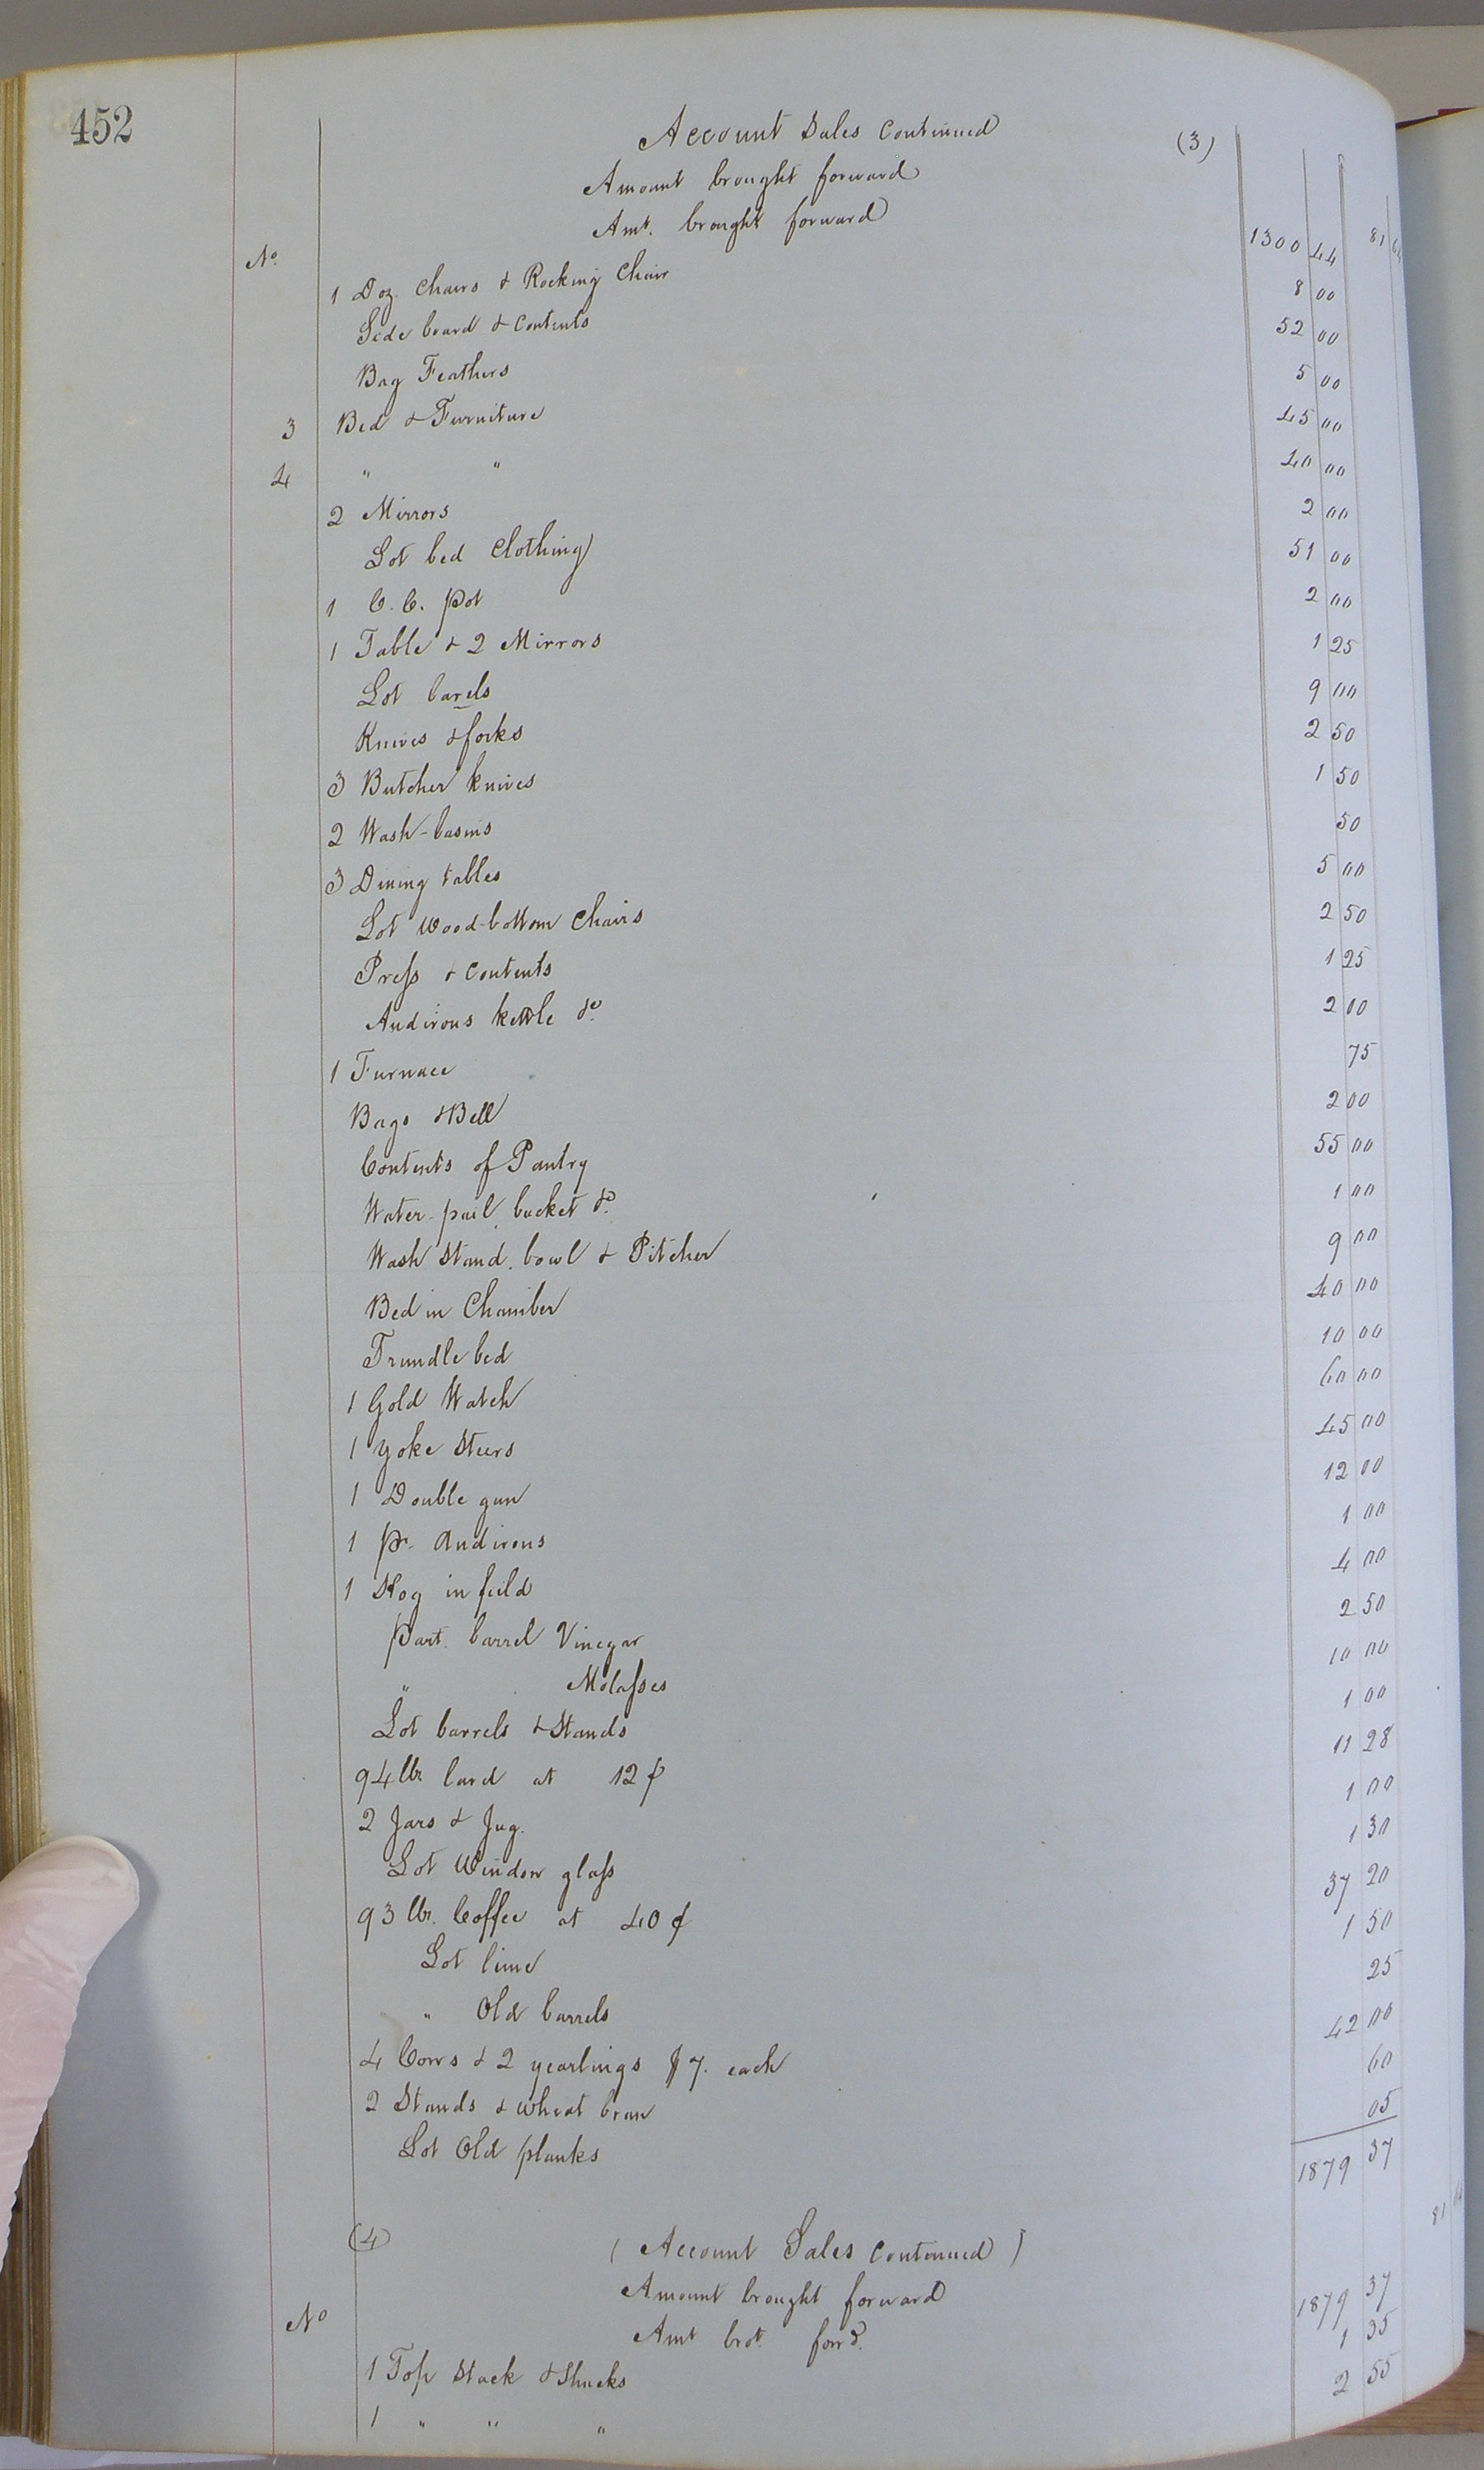 452
Account Sales Continued (3)
Amount brought forward 81
Amt. brought forward 1300 44
No.
1 Doz. Chairs & Rocking Chair 8 00
Side board & Contents 52 00
Bag Feathers 5 00
3 Bed & Furniture 45 00
4 " " 40 00
2 Mirrors 2 00
Lot bed Clothing 51 00
1 C. C. Pot 2 00
1 Table & 2 Mirrors 1 25
Lot barels 9 00
Knives & forks 2 50
3 Butcher knives 1 50
2 Wash-basins 50
3 Dining tables 5 00
Lot Wood-bottom Chairs 2 50
Press & Contents 1 25
Andirons kettle &c. 2 00
1 Furnace 75
Bags & Bell 2 00
Contents of Pantry 55 00
Water-pail, bucket &c. 1 00
Wash Stand, bowl & Pitcher 9 00
Bed in Chamber 40 00
Trundle bed 10 00
1 Gold Watch 60 00
1 Yoke Steers 45 00
1 Double gun 12 00
1 Pr. Andirons 1 00
1 Hog in feild 4 00
Part. barrel Vinegar 2 50
" Molasses 10 00
Lot barrels & Stands 1 00
94 lbs lard at 12 ¢ 11 28
2 Jars & Jug. 1 00
Lot Window glass 1 30
93 lbs. Coffee at 40 ¢ 37 20
Lot lime 1 50
" Old barrels 25
4 Cows & 2 yearlings $7. each 42 00
2 Stands & wheat bran 60
Lot Old planks 05
1879 37
(4) (Account Sales Continued)
Amount brought forward 81
No Amt brot. forrd. 1879 37
1 Top Stack & Shucks 1 35
1 " " " 2 55